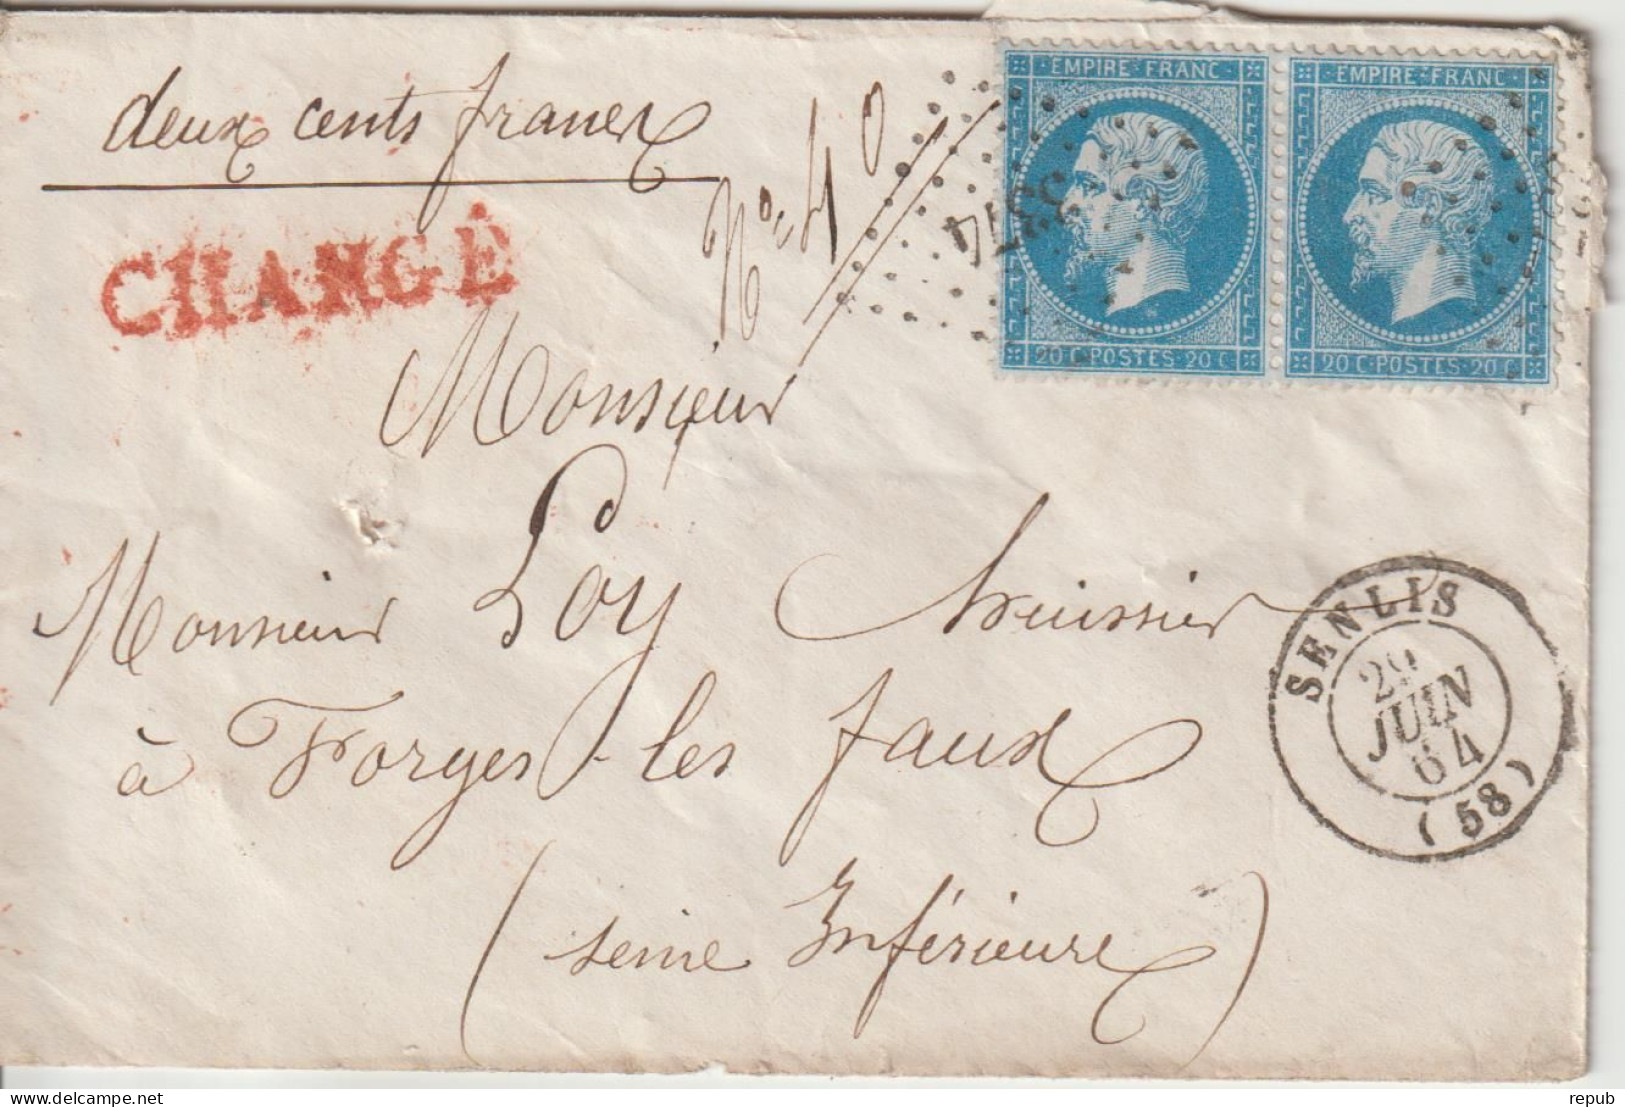 deux cents francs
CHARGÉ
N° 40
EMPIRE FRANC
EMPIRE FRANC
3374
20 C POSTES 20 C
20 C POSTES 20 C
Monsieur
Monsieur Loy huissier
à Forges-les faux
(seine Inférieure)
SENLIS
29
JUIN
64
(58)
repub
delcampe.net